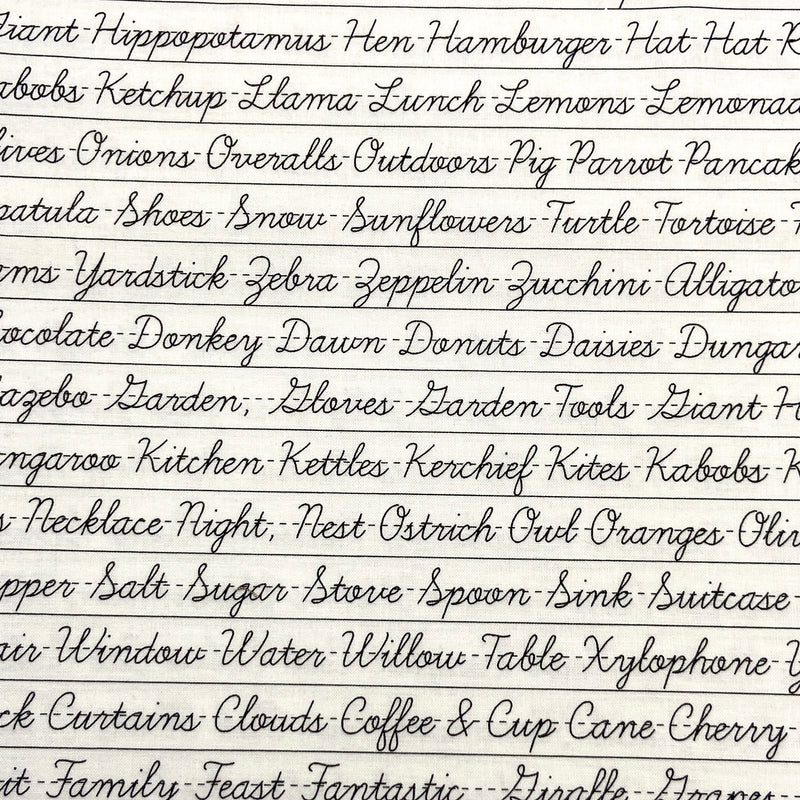 Giant-Hippopotamus-Hen-Hamburger-Hat-Hat-R
abobs-Ketchup-Llama-Lunch-Lemons-Lemonad
lives-Onions-Overalls-Outdoors-Pig-Parrot-Pancak
patula-Shoes-Snow--Sunflowers-Turtle-Tortoise-T
rms-Yardstick--Zebra--Zeppelin-Zucchini-Alligato
hocolate--Donkey-Dawn-Donuts-Daisies-Dungar
Gazebo-Garden,--Gloves-Garden-Tools-Giant-H
angaroo-Kitchen-Kettles-Kerchief-Kites-Kabobs-K
s-Necklace-Night,-Nest-Ostrich-Owl-Oranges-Oliv
epper-Salt-Sugar-Stove-Spoon-Sink-Suitcase-
air-Window-Water-Willow-Table-Xylophone-Y
ck-Curtains-Clouds-Coffee & Cup-Cane-Cherry-
it-Family-Feast-Fantastic---Giraffe-Grapes--